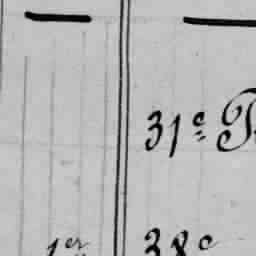 31e
1er 38e